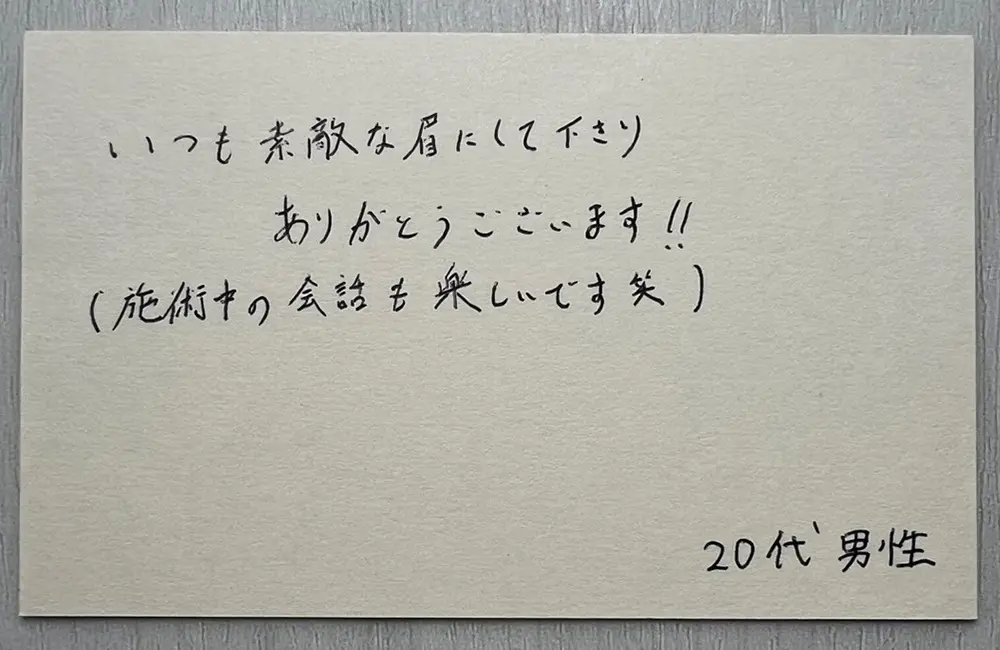 いつも素敵な眉にして下さり
ありがとうございます!!
(施術中の会話も楽しいです笑)
20代 男性